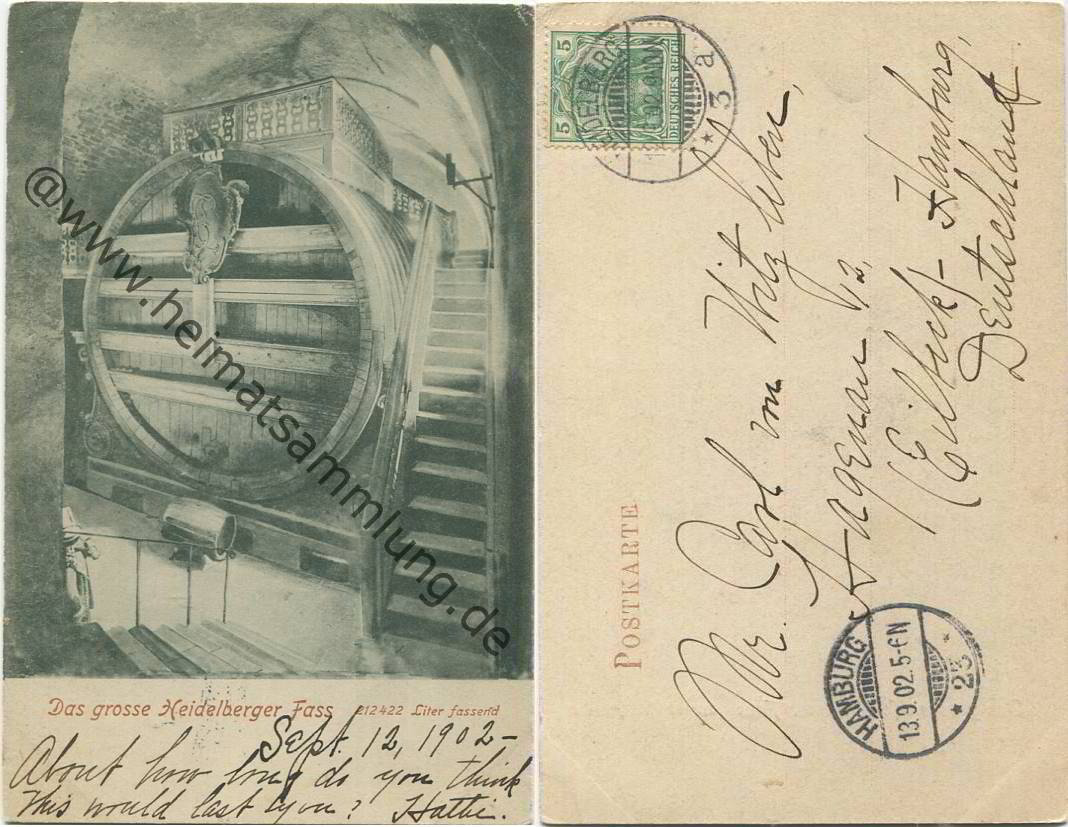 @www.heimatsammlung.de
Das grosse Heidelberger Fass 212422 Liter fassend
Sept. 12, 1902-
About how long do you think
this would last you? Hattie.
POSTKARTE
5 5
DEUTSCHES REICH
HEIDELBERG
* 3 a
Mr. Carl von Witzleben,
Hagenau 12,
(Eilbeck)- Hamburg,
Deutschland
HAMBURG
13.9.02.5-6N
* 23 *